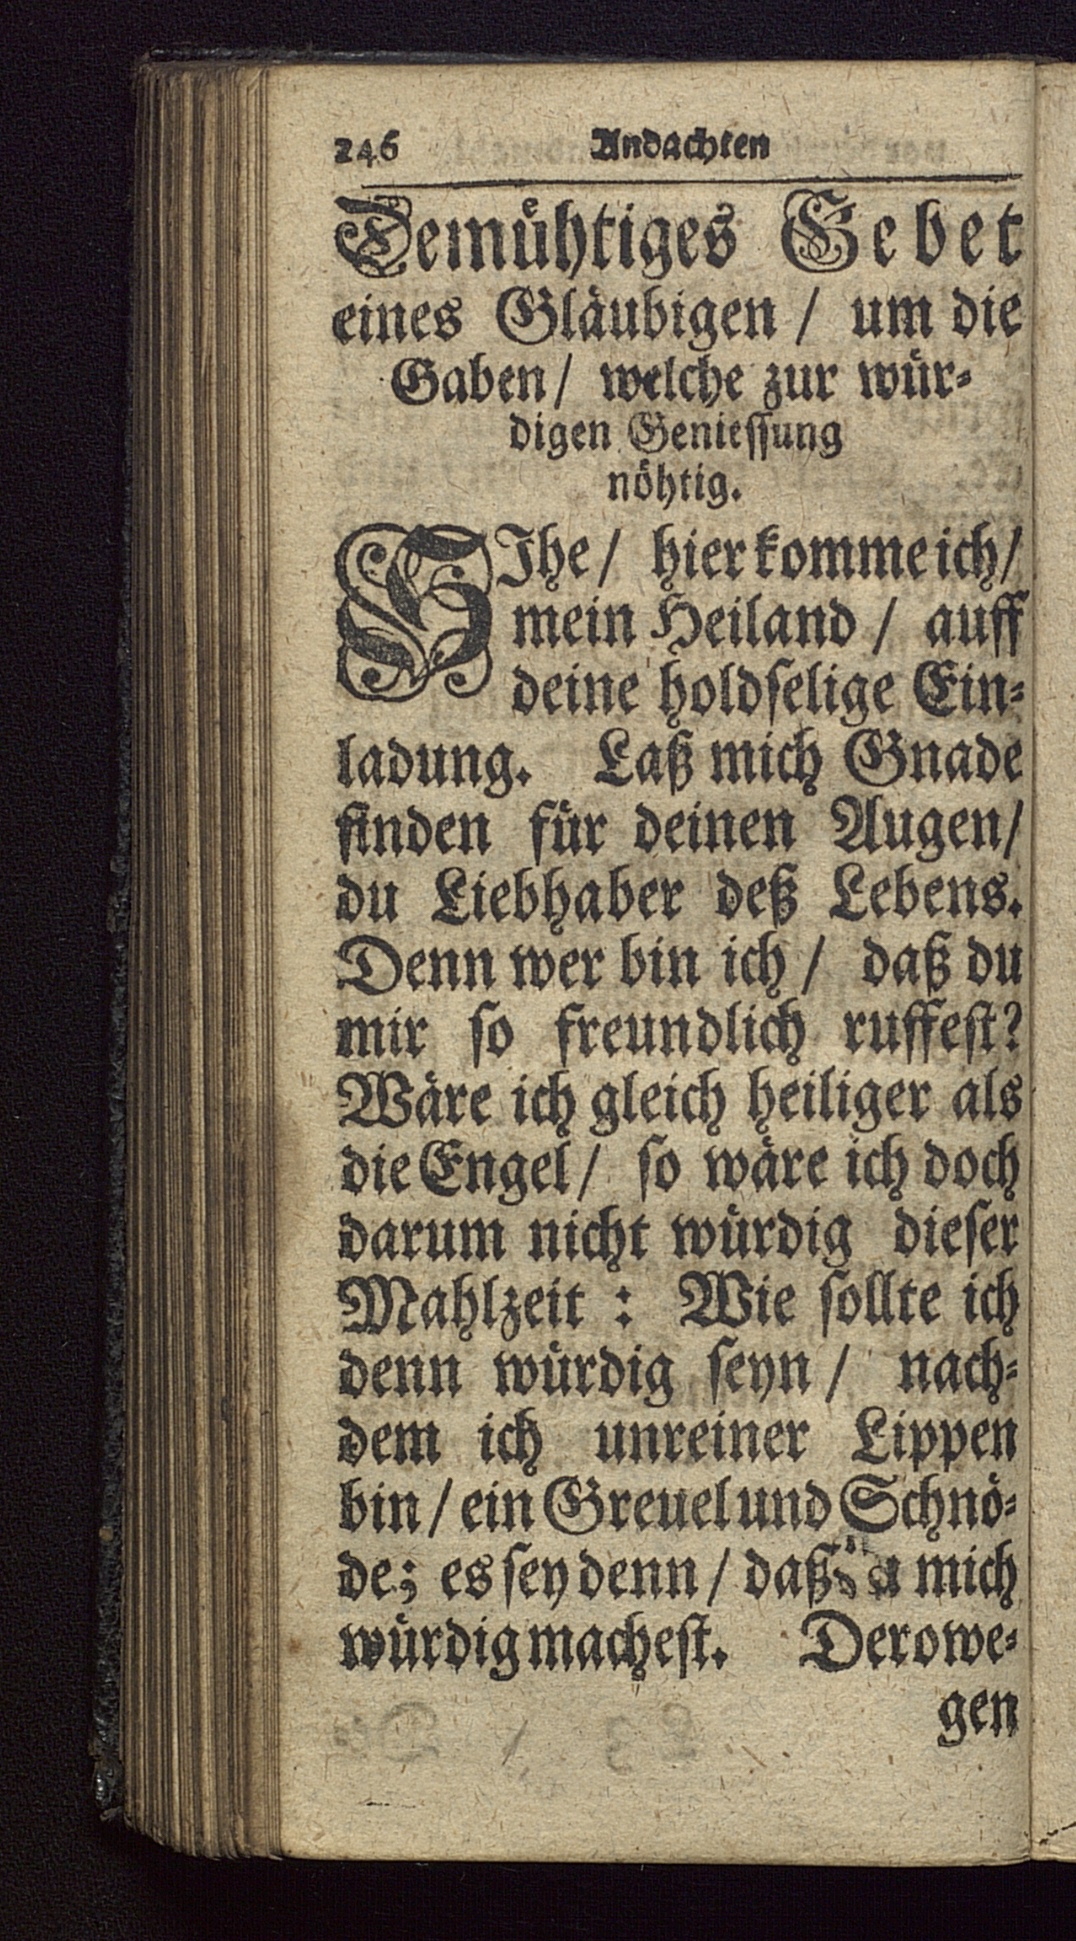 246 Andachten
Demühtiges Gebet
eines Gläubigen / um die
Gaben / welche zur wür-
digen Geniessung
nöhtig.
SIhe / hier komme ich /
mein Heiland / auff
deine holdselige Ein-
ladung. Laß mich Gnade
finden für deinen Augen /
du Liebhaber deß Lebens.
Denn wer bin ich / daß du
mir so freundlich ruffest?
Wäre ich gleich heiliger als
die Engel / so wäre ich doch
darum nicht würdig dieser
Mahlzeit : Wie sollte ich
denn würdig seyn / nach-
dem ich unreiner Lippen
bin / ein Greuel und Schnö-
de; es sey denn / daß du mich
würdig machest. Derowe-
gen